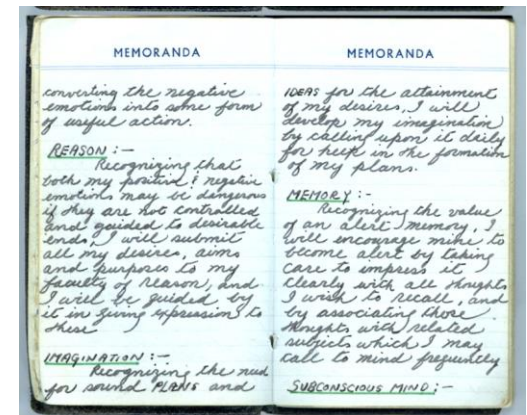 MEMORANDA
converting the negative
emotions into some form
of useful action.
REASON :—
Recognizing that
both my positive & negative
emotions may be dangerous
if they are not controlled
and guided to desirable
ends, I will submit
all my desires, aims
and purposes to my
faculty of reason, and
I will be guided by
it in giving expression to
these
IMAGINATION :—
Recognizing the need
for sound PLANS and
MEMORANDA
IDEAS for the attainment
of my desires, I will
develop my imagination
by calling upon it daily
for help in the formation
of my plans.
MEMORY :-
Recognizing the value
of an alert memory, I
will encourage mine to
become alert by taking
care to impress it
clearly with all thoughts
I wish to recall, and
by associating those
thoughts with related
subjects which I may
call to mind frequently
SUBCONSCIOUS MIND :—